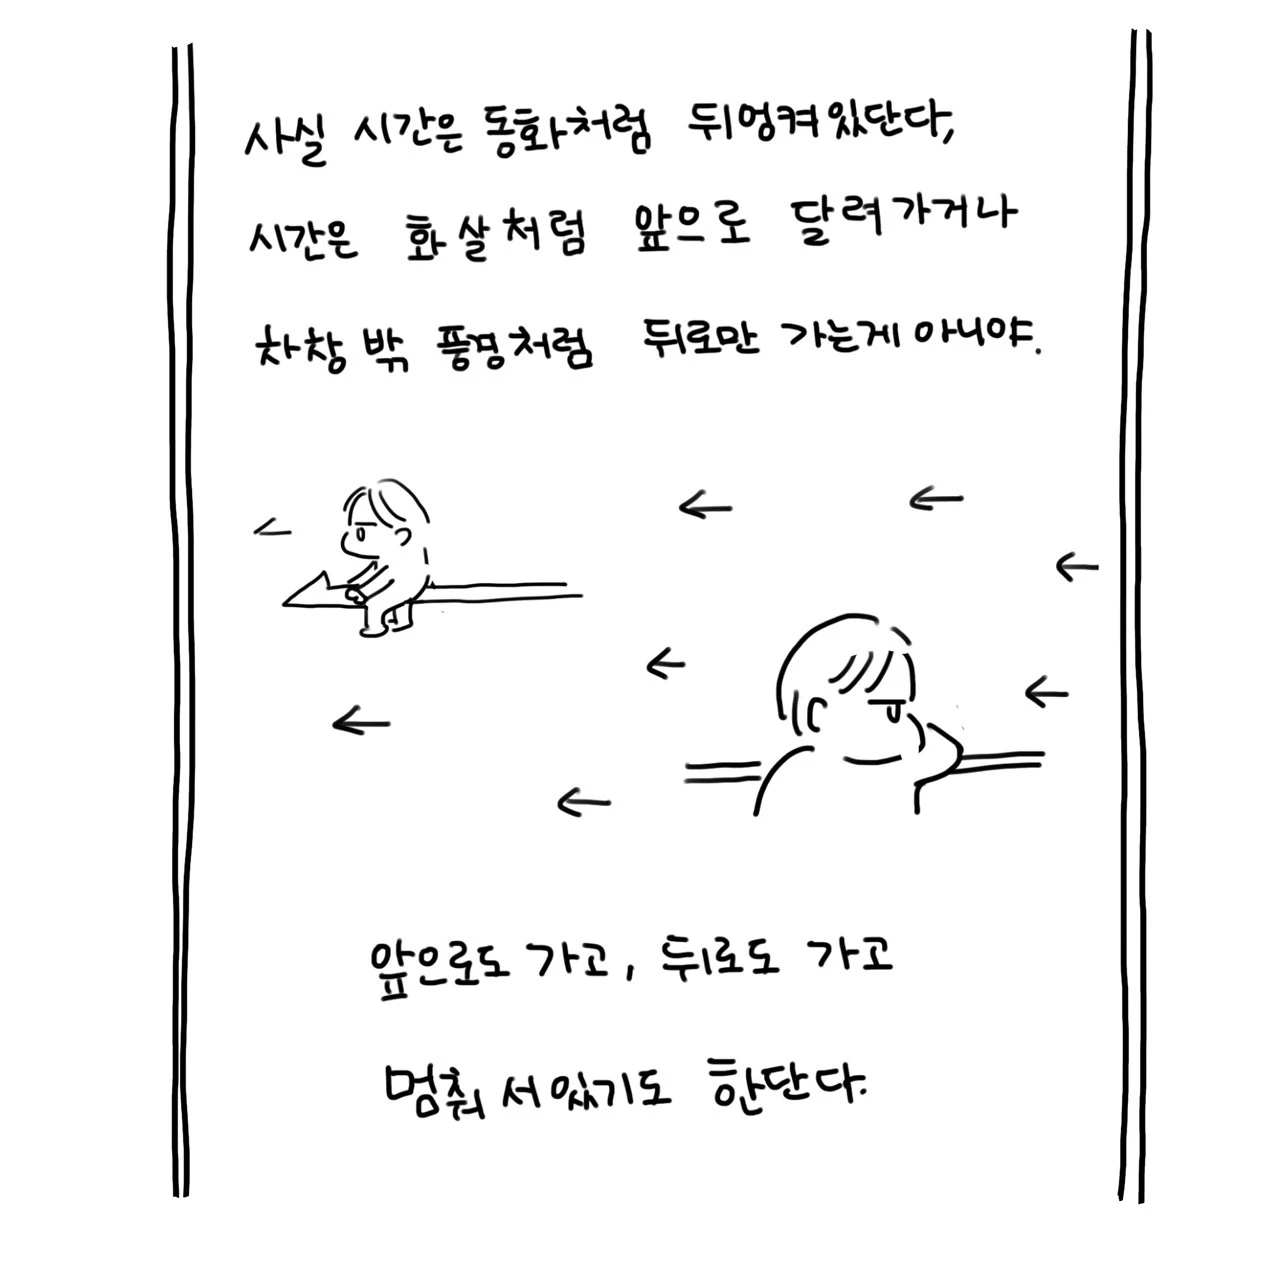 사실 시간은 동화처럼 뒤엉켜있단다,
시간은 화살처럼 앞으로 달려가거나
차창 밖 풍경처럼 뒤로만 가는게 아니야.
앞으로도 가고, 뒤로도 가고
멈춰 서있기도 한단다.